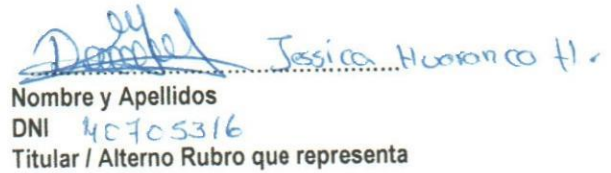 Jessica Huaranco H.
Nombre y Apellidos
DNI 40705316
Titular / Alterno Rubro que representa